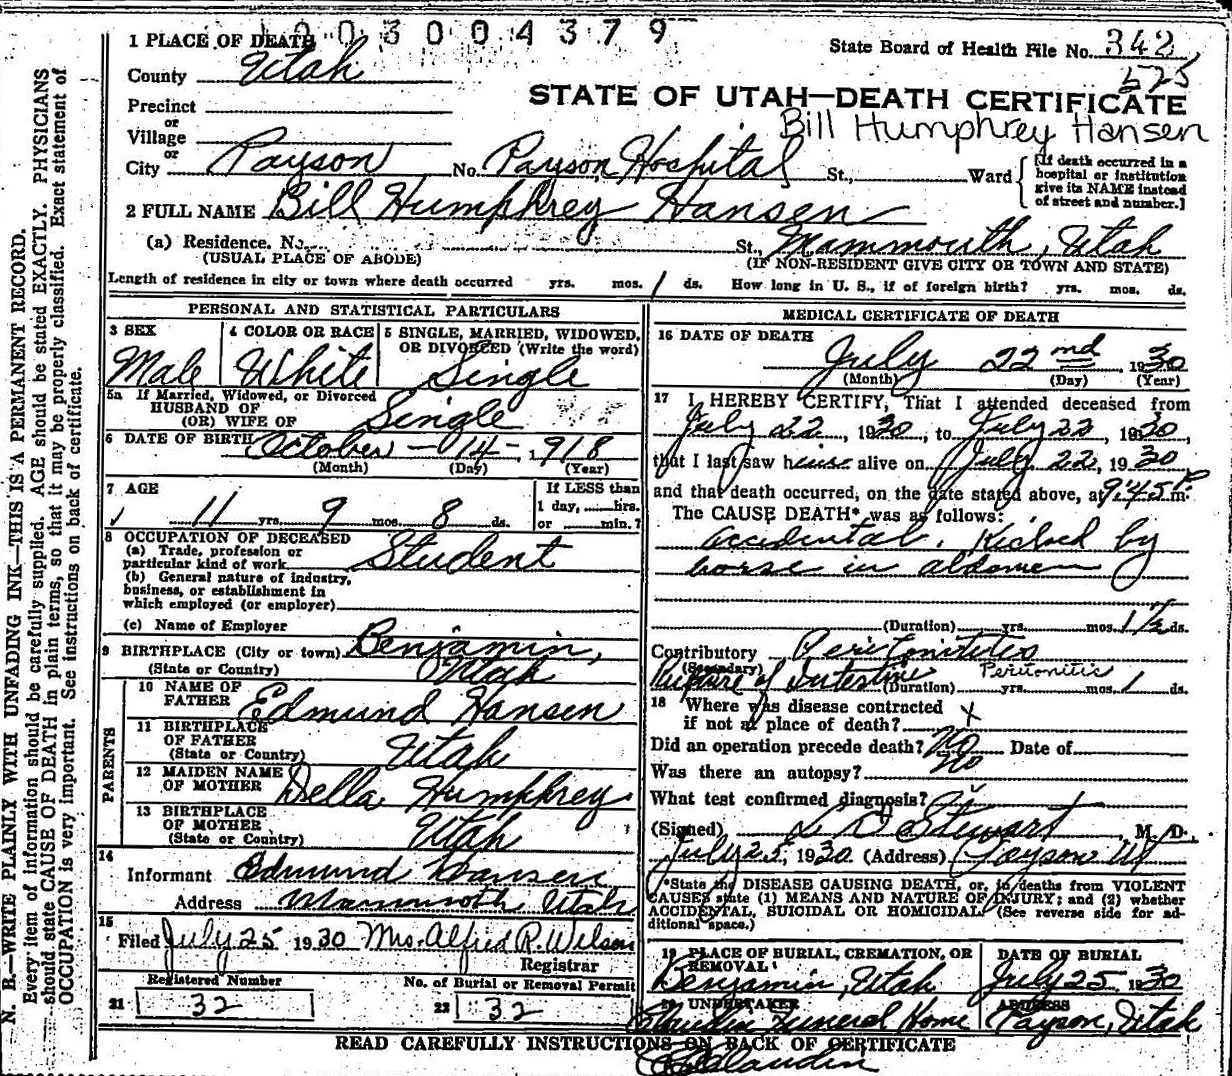 2030004379
1 PLACE OF DEATH
State Board of Health File No. 342
County Utah
575
Precinct
or
Village
or
STATE OF UTAH—DEATH CERTIFICATE
Bill Humphrey Hansen
City Payson No. Payson Hospital St., Ward [If death occurred in a hospital or institution give its NAME instead of street and number.]
2 FULL NAME Bill Humphrey Hansen
(a) Residence. No. St., Mammouth, Utah
(USUAL PLACE OF ABODE) (IF NON-RESIDENT GIVE CITY OR TOWN AND STATE)
Length of residence in city or town where death occurred yrs. mos. 1 ds. How long in U. S., if of foreign birth? yrs. mos. ds.
PERSONAL AND STATISTICAL PARTICULARS
3 SEX 4 COLOR OR RACE 5 SINGLE, MARRIED, WIDOWED,
OR DIVORCED (Write the word)
Male White Single
5a If Married, Widowed, or Divorced
HUSBAND OF
(OR) WIFE OF Single
6 DATE OF BIRTH October - 14 - 1918
(Month) (Day) (Year)
7 AGE If LESS than
1 day, hrs.
11 yrs. 9 mos. 8 ds. or min.?
8 OCCUPATION OF DECEASED
(a) Trade, profession or
particular kind of work Student
(b) General nature of industry,
business, or establishment in
which employed (or employer)
(c) Name of Employer
9 BIRTHPLACE (City or town) Benjamin,
(State or Country) Utah
PARENTS
10 NAME OF
FATHER Edmund Hansen
11 BIRTHPLACE
OF FATHER
(State or Country) Utah
12 MAIDEN NAME
OF MOTHER Della Humphrey
13 BIRTHPLACE
OF MOTHER
(State or Country) Utah
14
Informant Edmund Hansen
Address Mammoth Utah
15
Filed July 25 1930 Mrs. Alfred R. Wilson
Registrar
Registered Number No. of Burial or Removal Permit
21 32 22 32
MEDICAL CERTIFICATE OF DEATH
16 DATE OF DEATH
July 22nd 1930
(Month) (Day) (Year)
17 I HEREBY CERTIFY, That I attended deceased from
July 22, 1930, to July 22, 1930,
that I last saw him alive on July 22, 1930
and that death occurred, on the date stated above, at 9:45 P m.
The CAUSE DEATH* was as follows:
accidental. Kicked by
horse in abdomen
(Duration) yrs. mos. 1½ ds.
Contributory Peritonitis
(Secondary)
Rupture of Intestine (Duration) Peritonitis yrs. mos. 1 ds.
18 Where was disease contracted
if not at place of death? X
Did an operation precede death? No Date of
Was there an autopsy? No
What test confirmed diagnosis?
(Signed) L D Stewart M. D.
July 25, 1930 (Address) Payson Ut
*State the DISEASE CAUSING DEATH, or, in deaths from VIOLENT
CAUSES state (1) MEANS AND NATURE OF INJURY; and (2) whether
ACCIDENTAL, SUICIDAL OR HOMICIDAL. (See reverse side for ad-
ditional space.)
19 PLACE OF BURIAL, CREMATION, OR
REMOVAL DATE OF BURIAL
Benjamin, Utah July 25 1930
20 UNDERTAKER ADDRESS
Claudin Funeral Home Payson, Utah
Claudin
READ CAREFULLY INSTRUCTIONS ON BACK OF CERTIFICATE
N. B.—WRITE PLAINLY WITH UNFADING INK—THIS IS A PERMANENT RECORD.
Every item of information should be carefully supplied. AGE should be stated EXACTLY. PHYSICIANS
should state CAUSE OF DEATH in plain terms, so that it may be properly classified. Exact statement of
OCCUPATION is very important. See instructions on back of certificate.